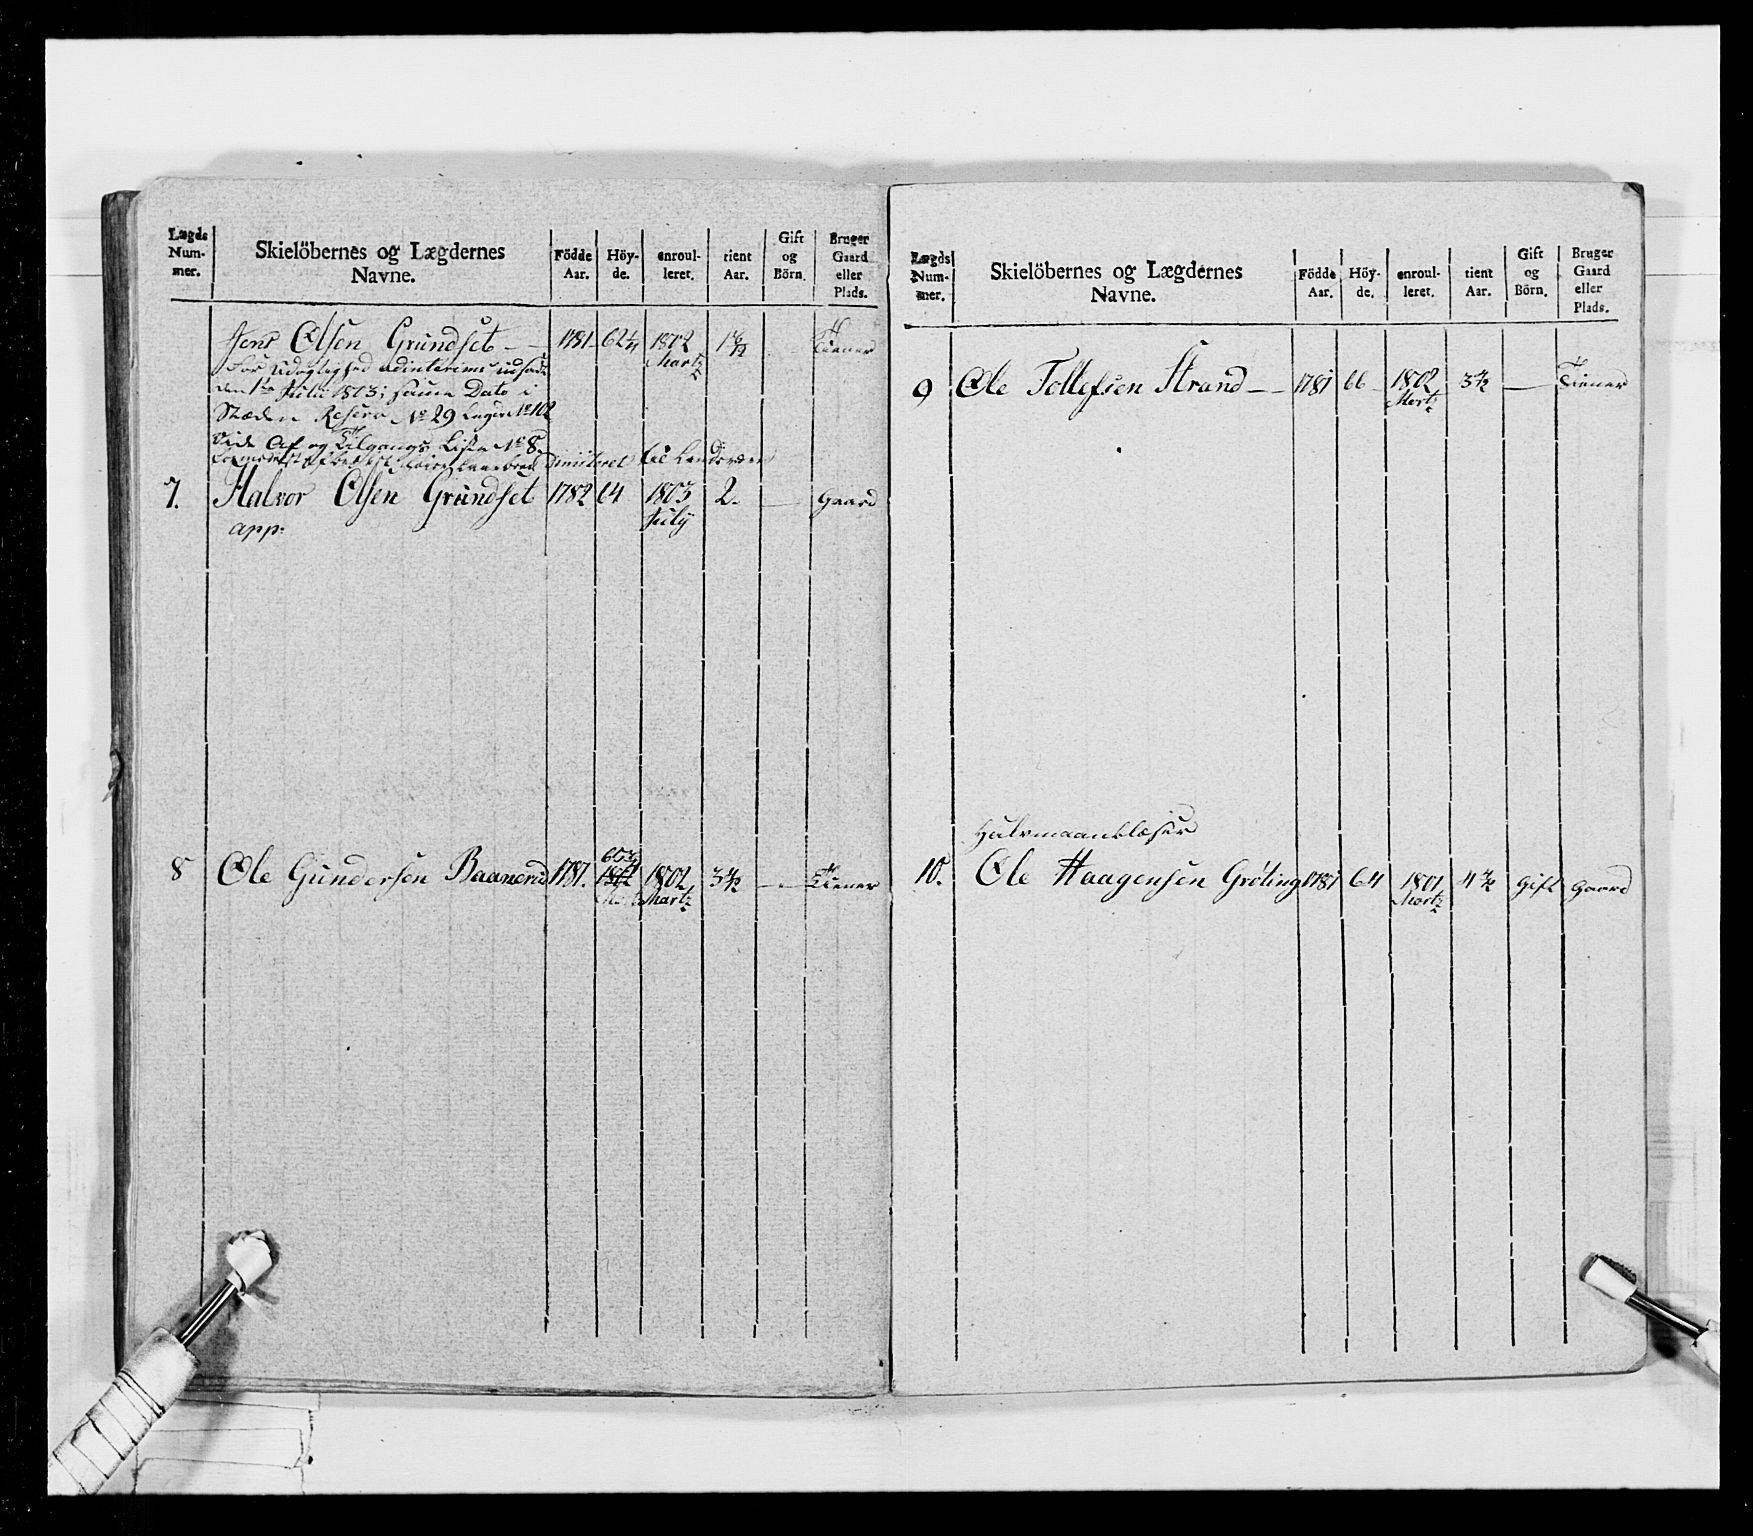 Lægds Num- mer. | Skielöbernes og Lægdernes Navne. | Födde Aar. | Höy- de. | enroul- leret. | tient Aar. | Gift og Börn. | Bruger Gaard eller Plads.
Jens Olsen Grundset — 1781 62¼ 1802 Martz Tiener
For Udøgtighed adinterims
den 1te Julii 1803; samme Dato i
Stæden Reserv No 29 Lægd No 102
Vide Af og Tilgangs Liste No 8.
Dimiteret til Landværn
7. Halvor Olsen Grundset 1782 64 1803 July 2. — Gaard
app:
8 Ole Gundersen Baanerud 1781. 1802 Martz 3½ — Tiener
Lægds Num- mer. | Skielöbernes og Lægdernes Navne. | Födde Aar. | Höy- de. | enroul- leret. | tient Aar. | Gift og Börn. | Bruger Gaard eller Plads.
9 Ole Tollefsen Strand — 1781 66 — 1802 Martz 3½ — Tiener
Halvmaanblæser
10. Ole Haagensen Gröting 1781 64 1801 Martz 4½ Gift Gaard